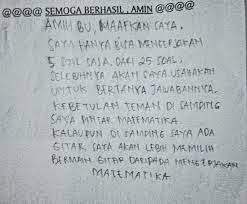 @@@@ SEMOGA BERHASIL, AMIN @@@@
AMIN BU, MAAFKAN SAYA.
SAYA HANYA BISA MENGERJAKAN
5 SOAL SAJA, DARI 25 SOAL,
SELEBIHNYA AKAN SAYA USAHAKAN
UNTUK BERTANYA JAWABANNYA.
KEBETULAN TEMAN DI SAMPING
SAYA PINTAR MATEMATIKA.
KALAUPUN DI SAMPING SAYA ADA
GITAR SAYA AKAN LEBIH MEMILIH
BERMAIN GITAR DARIPADA MENGERJAKAN
MATEMATIKA